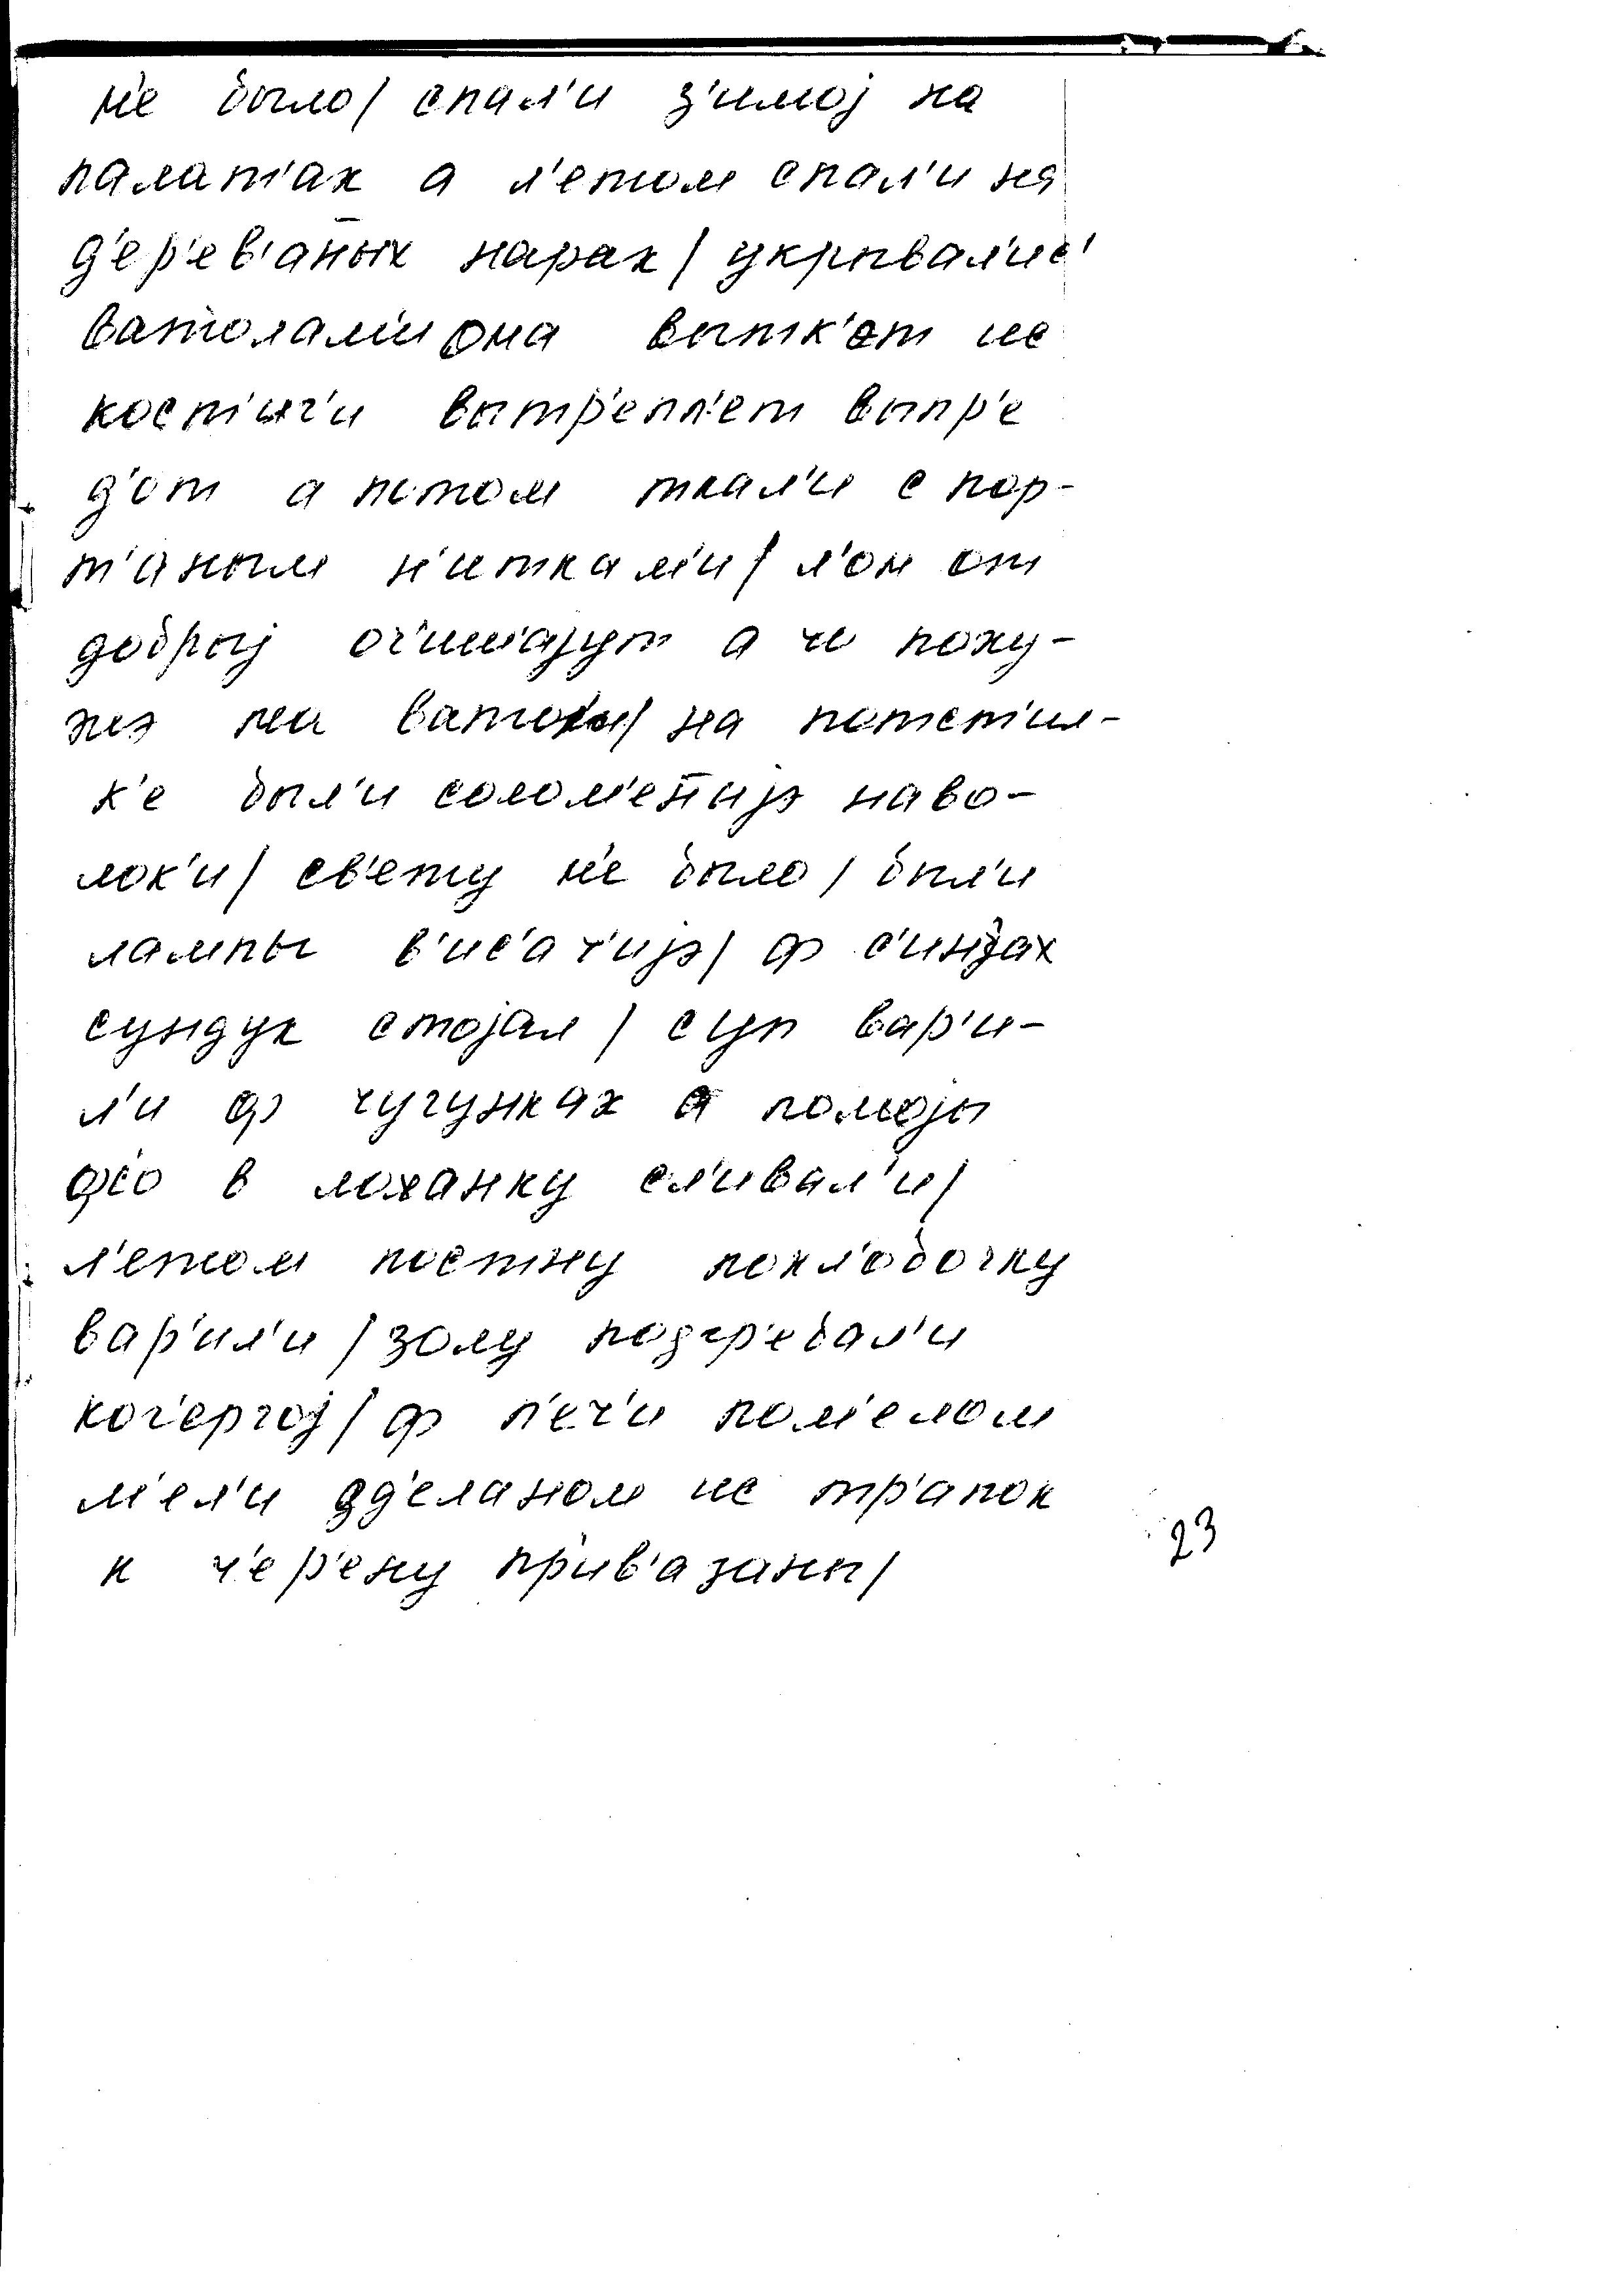 н'е было/ спал'и з'имој на
палат'ах а л'етом спал'и на
д'ер'ев'ан̄ых нарах/ укрывал'ис'
ватолам'и она вытк'от ис
кост'иг'и вытр'епл'ет выпр'е
д'от а потом ткал'и с пор-
т'аным н'иткам'и/ л'он от
доброј оч'иш'ајут а ч'о поху-
жэ на ватолы/ на потст'ил-
к'е был'и солом'ен̄ијэ наво-
лок'и/ св'ету н'е было/ был'и
лампы в'ис'ач'ијэ/ ф с'инцах
сундук стојал/ суп вар'и-
л'и ф чугунках а помојы
фс'о в лоханку сл'ивал'и/
л'етом постну похл'обочку
вар'ил'и/ золу подгр'ебал'и
коч'ергој/ ф п'еч'и пом'елом
м'ел'и зд'еланом ис тр'апок
к ч'ер'ену пр'ив'азаны/
23